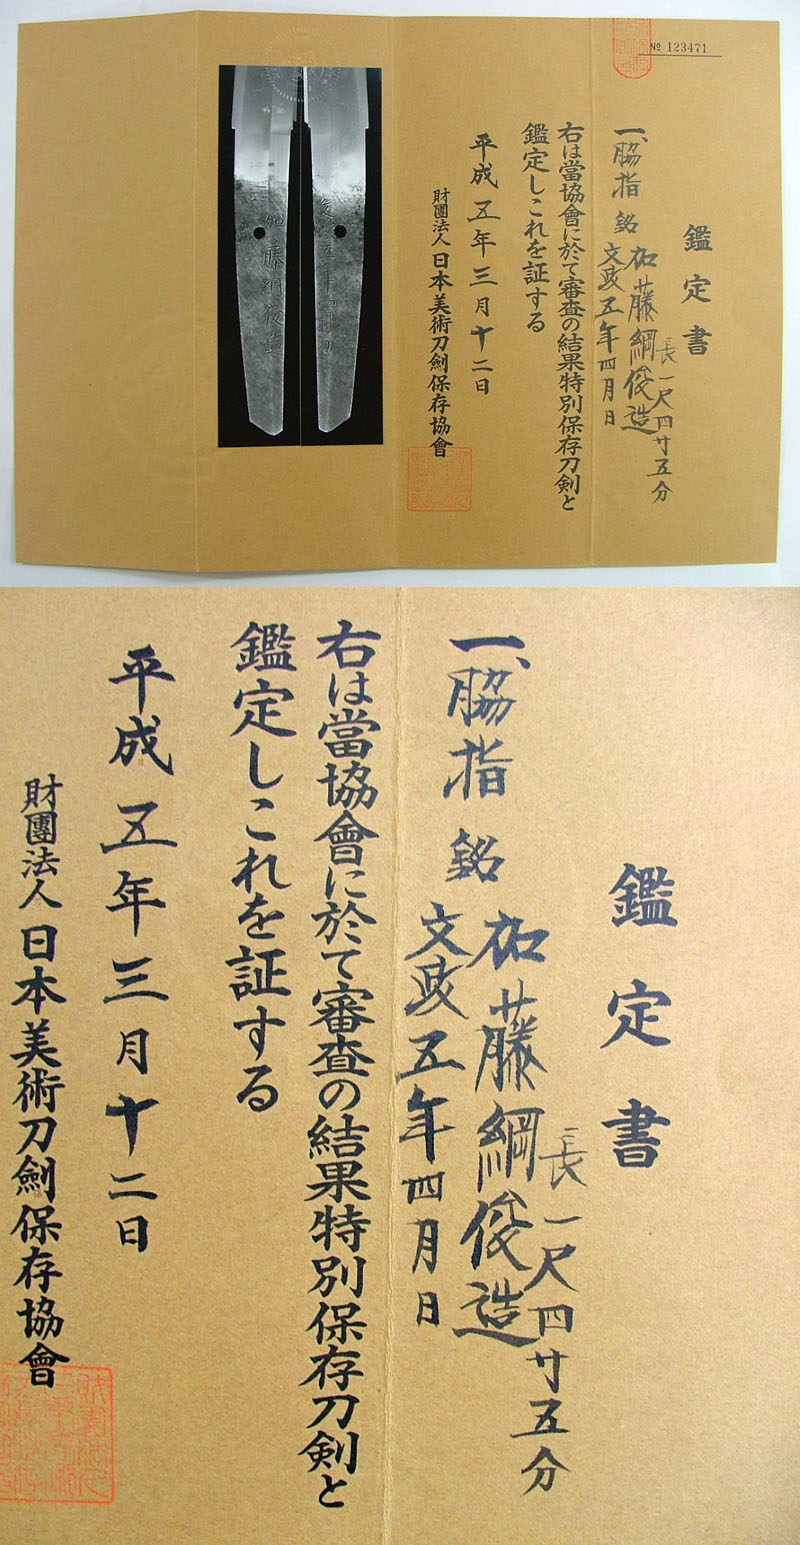 № 123471
鑑定書
一、脇指 銘 加藤綱俊造
文政五年四月日
長一尺四寸五分
右は當協會に於て審査の結果特別保存刀剣と
鑑定しこれを証する
平成五年三月十二日
財團法人日本美術刀劍保存協會
加藤綱俊造
鑑定書
長一尺四寸五分
一、脇指 銘 加藤綱俊造
文政五年四月日
右は當協會に於て審査の結果特別保存刀剣と
鑑定しこれを証する
平成五年三月十二日
財團法人日本美術刀劍保存協會